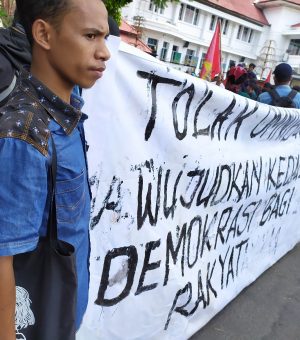 TOLAK
WUJUDKAN
DEMOKRASI BAGI
RAKYAT